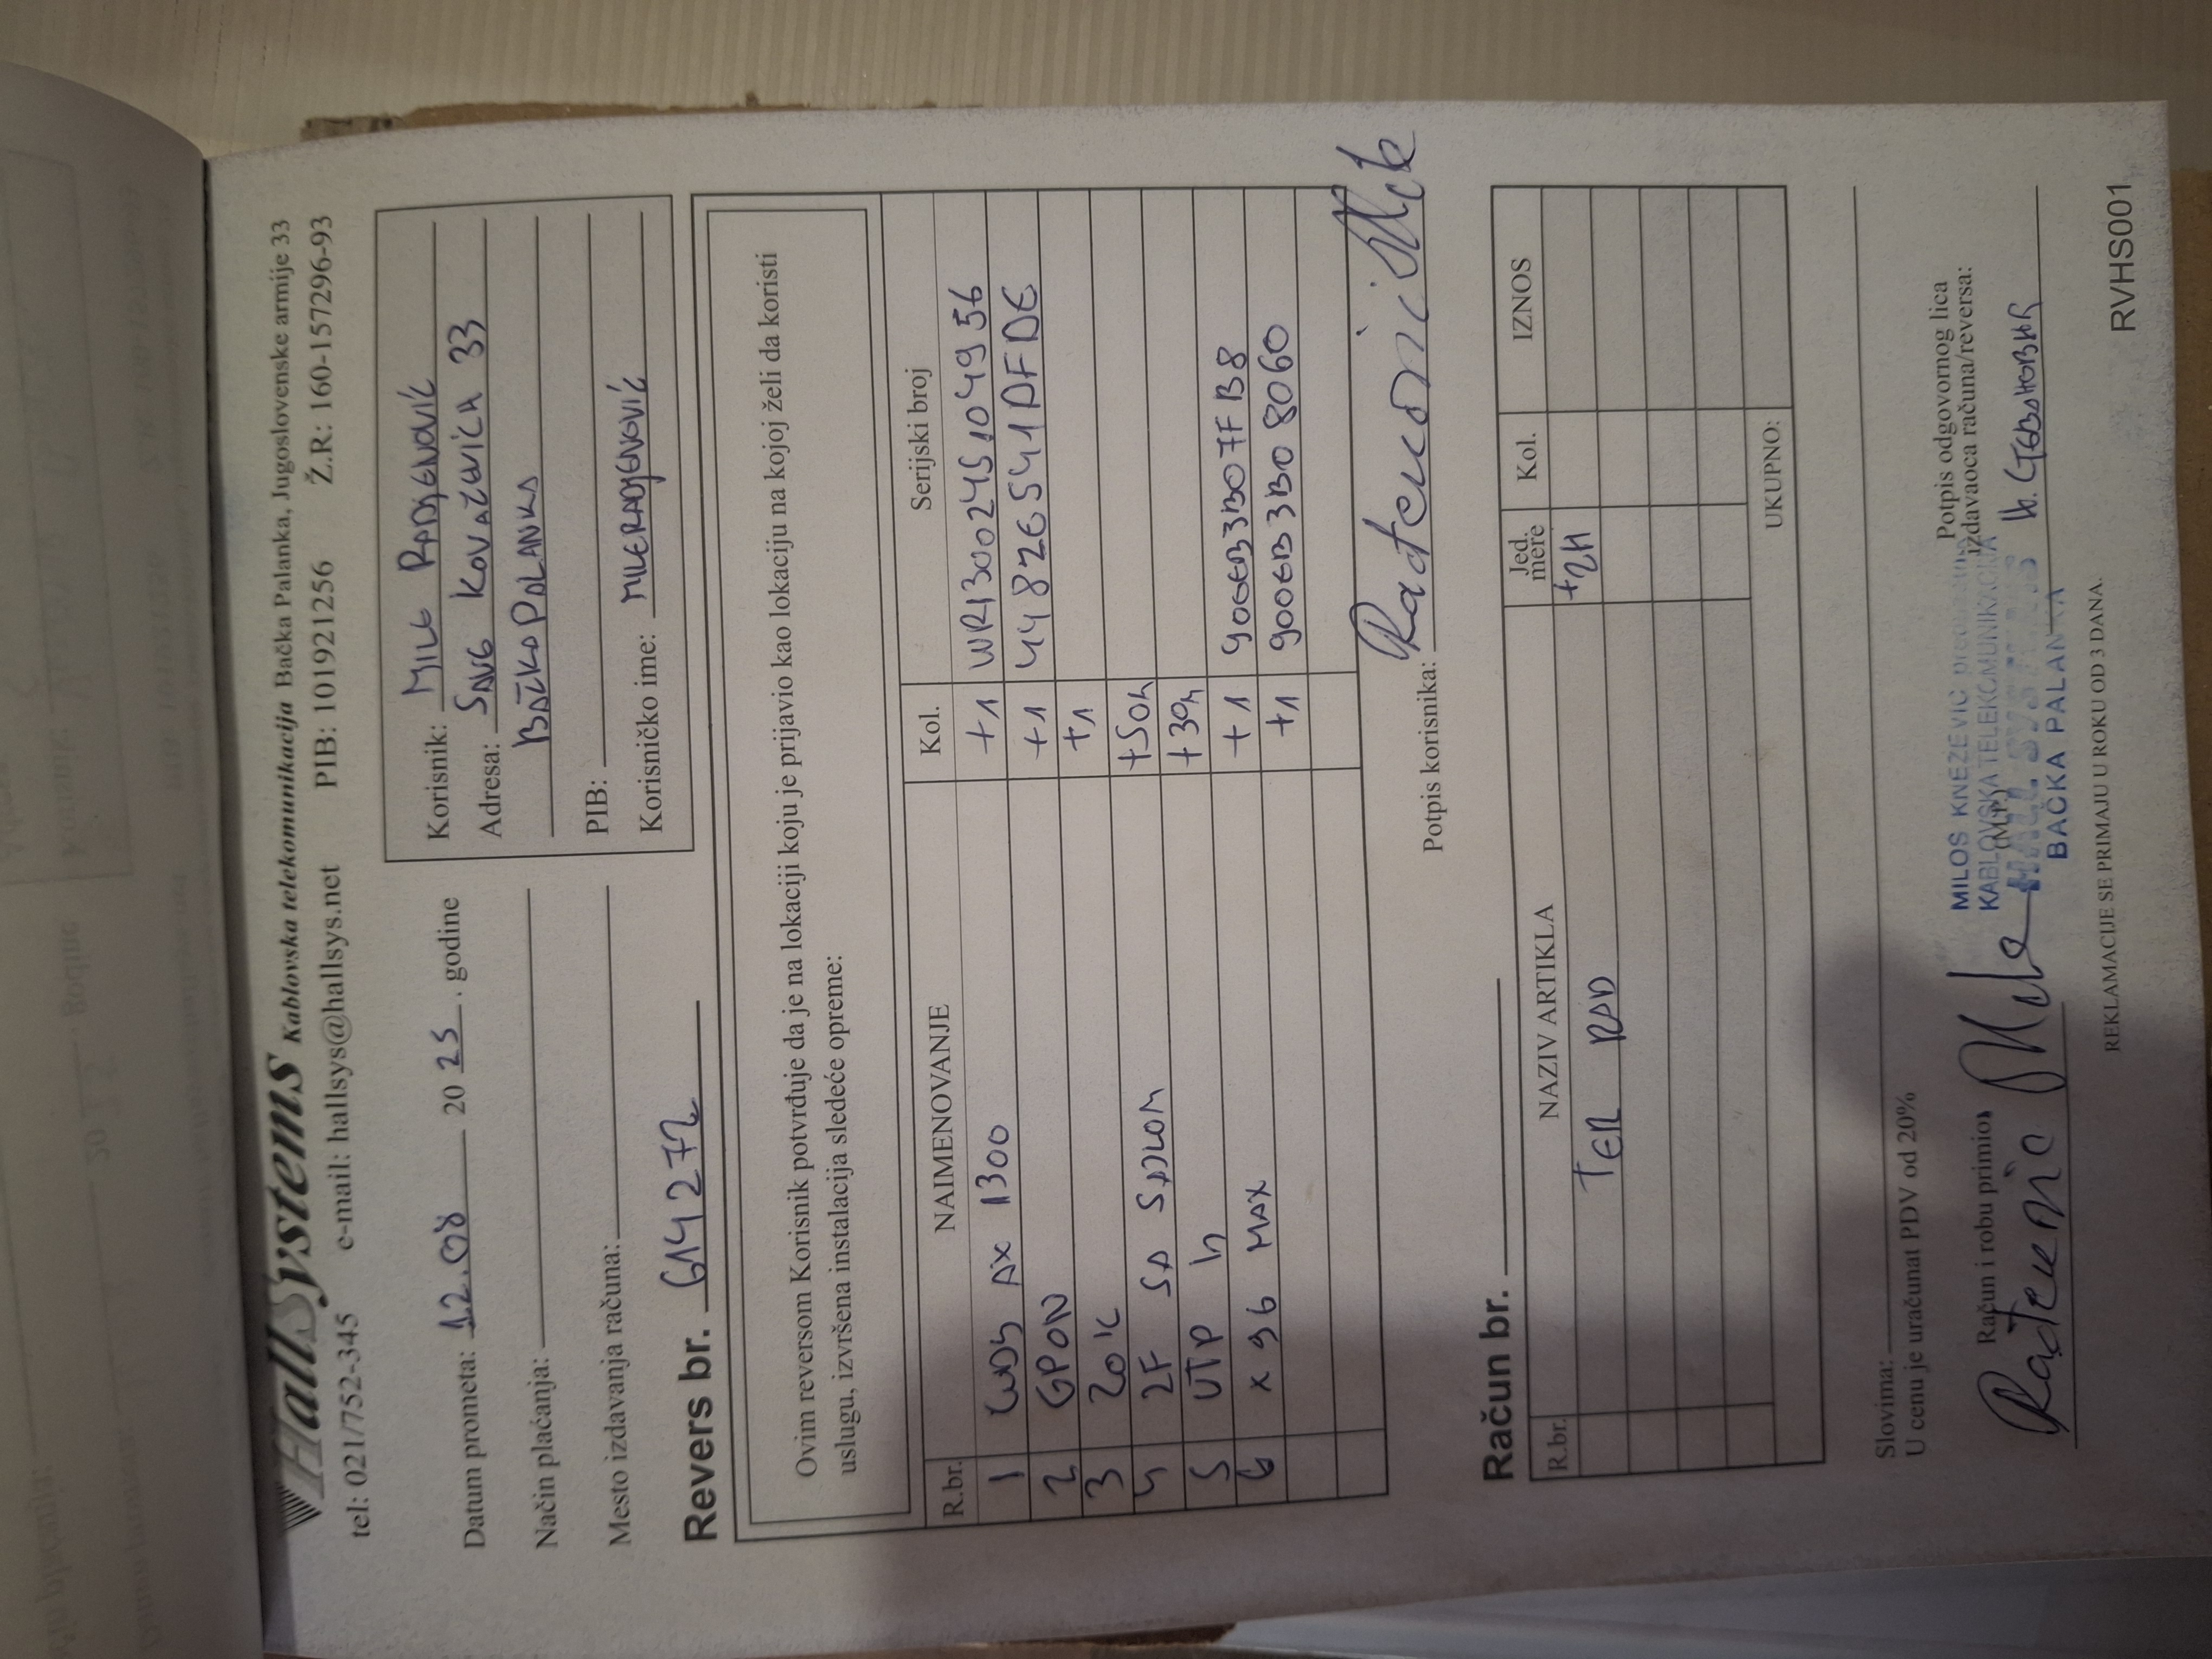 HallSystems Kablovska telekomunikacija Bačka Palanka, Jugoslovenske armije 33
tel: 021/752-345 e-mail: hallsys@hallsys.net PIB: 101921256 Ž.R: 160-157296-93
Datum prometa: 12.08 2025. godine
Način plaćanja:
Mesto izdavanja računa:
Korisnik: MILE RADJENOVIĆ
Adresa: SAVE KOVAČEVIĆA 33
BAČKA PALANKA
PIB:
Korisničko ime: MILERADJENOVIĆ
Revers br. 614272
Ovim reversom Korisnik potvrđuje da je na lokaciji koju je prijavio kao lokaciju na kojoj želi da koristi
uslugu, izvršena instalacija sledeće opreme:
R.br. NAIMENOVANJE Kol. Serijski broj
1 AX 1300 +1 WR13002451049 56
2 GPON +1 4482E541AFDE
3 ZOK +1
4 2F SA +50m
5 UTP +30m
6 X 96 MAX +1 900EB3B07FB8
+1 900EB3B08060
Potpis korisnika: Radenović Mile
Račun br.
R.br. NAZIV ARTIKLA Jed. mere Kol. IZNOS
TER RAD +2H
UKUPNO:
Slovima:
U cenu je uračunat PDV od 20%
Račun i robu primio:
Potpis odgovornog lica
izdavaoca računa/reversa:
MILOS KNEZEVIC
KABLOVSKA TELEKOMUNIKACIJA
(M.P.)
BAČKA PALANKA
REKLAMACIJE SE PRIMAJU U ROKU OD 3 DANA.
RVHS001